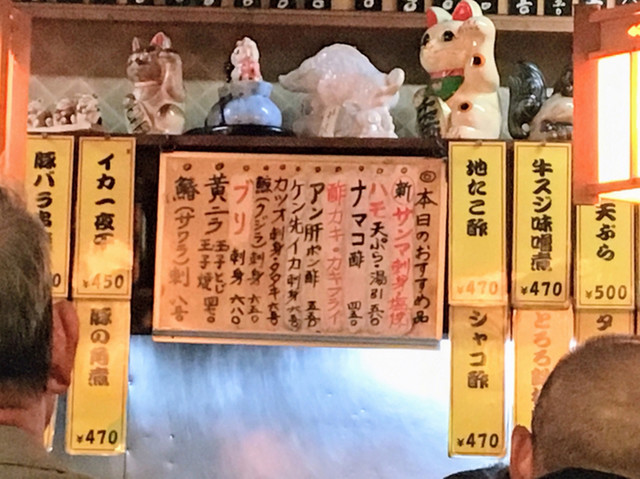 豚バラ串
イカ一夜干
¥450
豚の角煮
¥470
◎本日のおすすめ品
新サンマ刺身塩焼
ハモ天ぷら・湯引 五五〇
ナマコ酢 四五〇
酢カキ・カキフライ
アン肝ポン酢 五五〇
ケン先イカ刺身 六八〇
カツオ刺身・タタキ
鯨(クジラ)刺身 六五〇
ブリ 刺身 六八〇
黄ニラ 玉子とじ 玉子焼 四七〇
鰆(サワラ)刺
地たこ酢
¥470
シャコ酢
¥470
牛スジ味噌煮
¥470
とろろ
天ぷら
¥500
タ